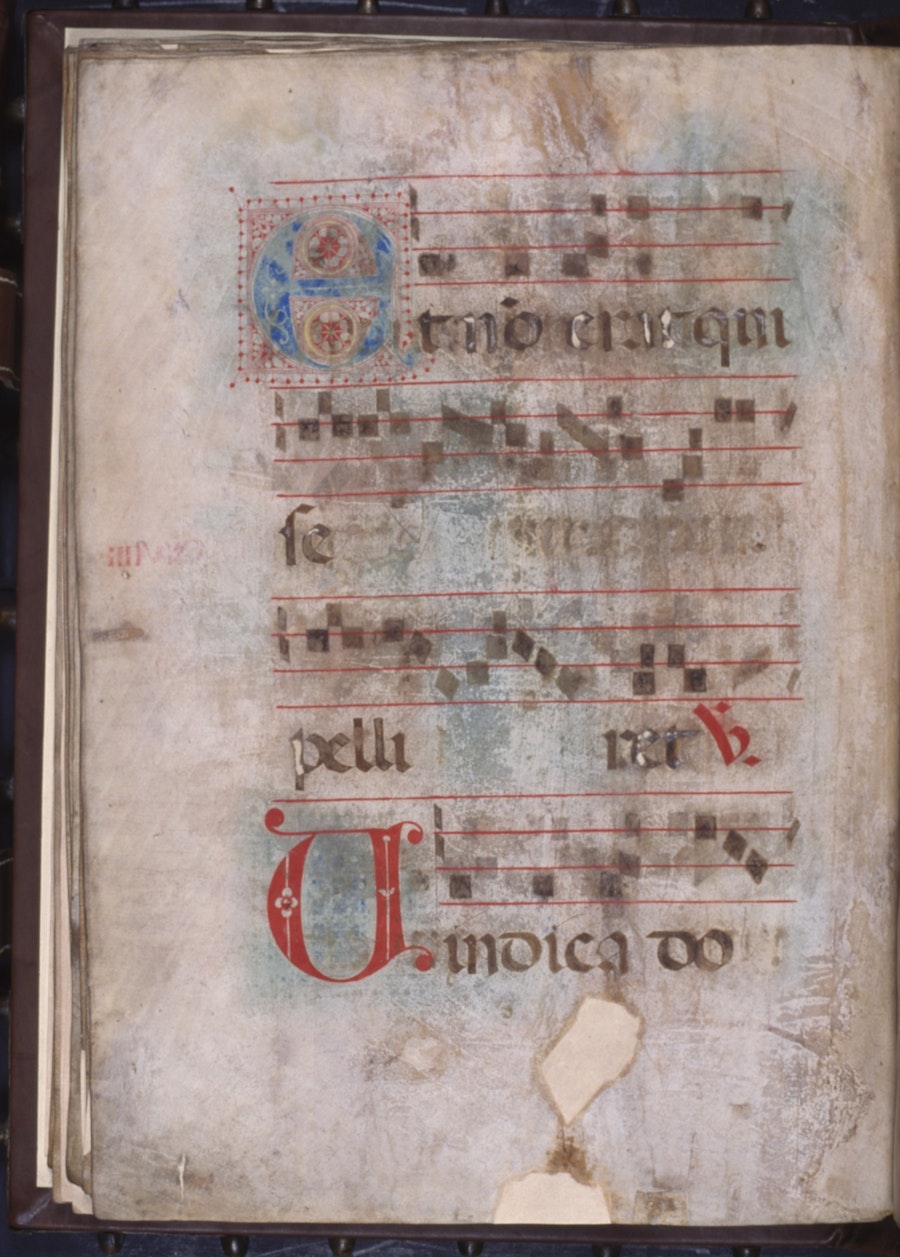 Et nō erat qui
se
pelli ret V.
Uindica do